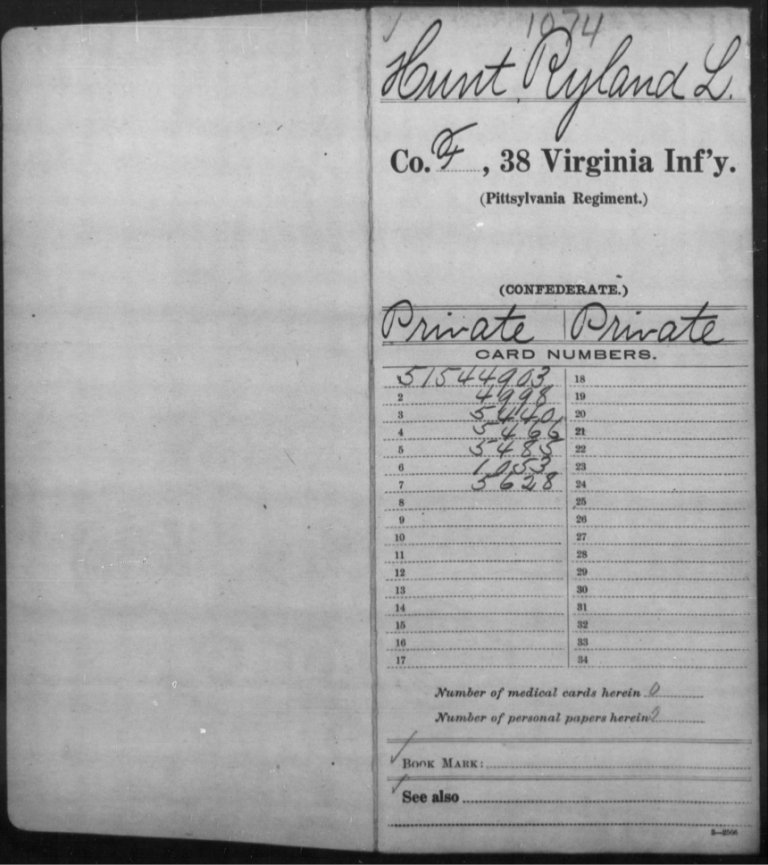 1074
Hunt, Ryland L.
Co. F, 38 Virginia Inf'y.
(Pittsylvania Regiment.)
(CONFEDERATE.)
Private | Private
CARD NUMBERS.
51544903 18
2 4998 19
3 5440 20
4 5466 21
5 5485 22
6 1053 23
7 5628 24
8 25
9 26
10 27
11 28
12 29
13 30
14 31
15 32
16 33
17 34
Number of medical cards herein 0
Number of personal papers herein
BOOK MARK:
See also